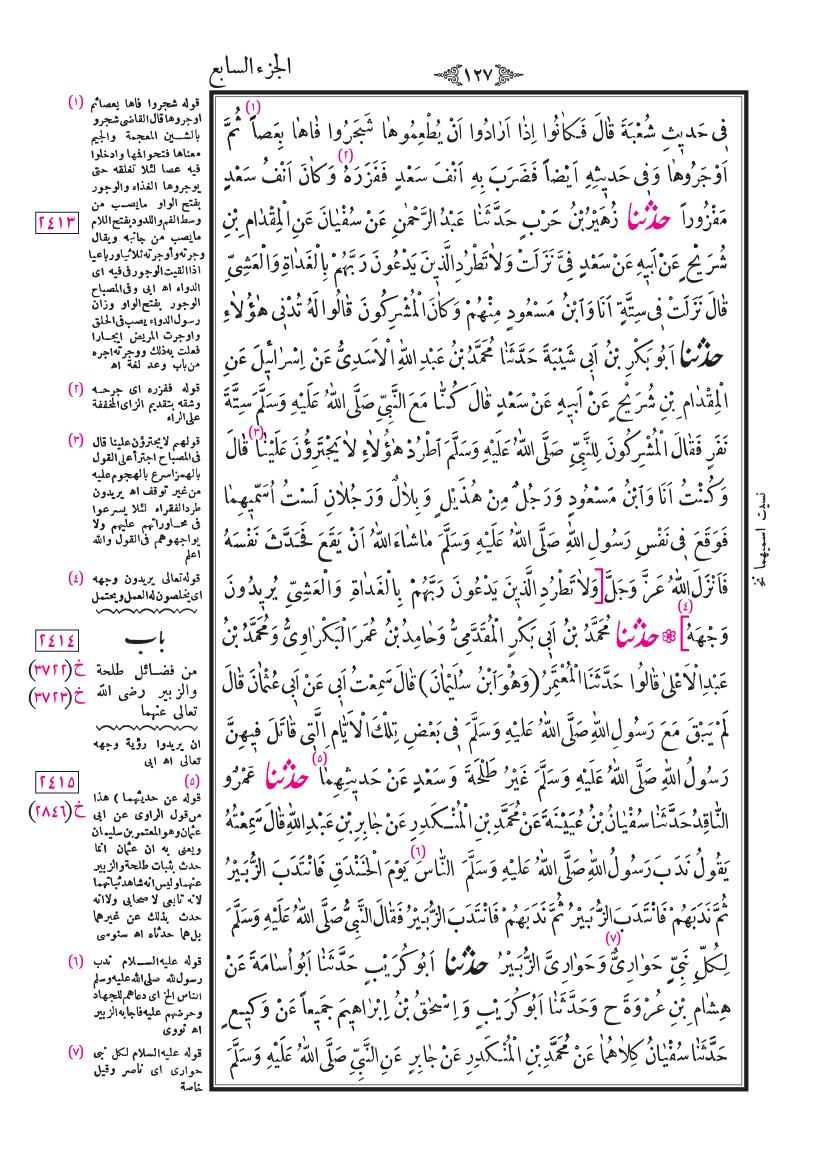 ١٢٧
الجزء السابع
فِى حَدِيثِ شُعْبَةَ قَالَ فَكَانُوا اِذَا اَرَادُوا اَنْ يُطْعِمُوهَا شَجَرُوا فَاهَا بِعَصاً (١) ثُمَّ
اَوْجَرُوهَا وَفِى حَدِيثِهِ اَيْضاً فَضَرَبَ بِهِ اَنْفَ سَعْدٍ فَفَزَرَهُ (٢) وَكَانَ اَنْفُ سَعْدٍ
مَفْزُوراً حَدَّثَنَا زُهَيْرُ بْنُ حَرْبٍ حَدَّثَنَا عَبْدُ الرَّحْمٰنِ عَنْ سُفْيَانَ عَنِ الْمِقْدَامِ بْنِ
شُرَيْحٍ عَنْ اَبِيهِ عَنْ سَعْدٍ فِىَّ نَزَلَتْ وَلَا تَطْرُدِ الَّذِينَ يَدْعُونَ رَبَّهُمْ بِالْغَدَاةِ وَالْعَشِىِّ
قَالَ نَزَلَتْ فِى سِتَّةٍ اَنَا وَابْنُ مَسْعُودٍ مِنْهُمْ وَكَانَ الْمُشْرِكُونَ قَالُوا لَهُ تُدْنِى هٰؤُلَاءِ
حَدَّثَنَا اَبُو بَكْرِ بْنُ اَبِى شَيْبَةَ حَدَّثَنَا مُحَمَّدُ بْنُ عَبْدِ اللهِ الْاَسَدِىُّ عَنْ اِسْرَائِيلَ عَنِ
الْمِقْدَامِ بْنِ شُرَيْحٍ عَنْ اَبِيهِ عَنْ سَعْدٍ قَالَ كُنَّا مَعَ النَّبِىِّ صَلَّى اللهُ عَلَيْهِ وَسَلَّمَ سِتَّةَ
نَفَرٍ فَقَالَ الْمُشْرِكُونَ لِلنَّبِىِّ صَلَّى اللهُ عَلَيْهِ وَسَلَّمَ اطْرُدْ هٰؤُلَاءِ لَا يَجْتَرِؤُنَ عَلَيْنَا (٣) قَالَ
وَكُنْتُ اَنَا وَابْنُ مَسْعُودٍ وَرَجُلٌ مِنْ هُذَيْلٍ وَبِلَالٌ وَرَجُلَانِ لَسْتُ اُسَمِّيهِمَا
فَوَقَعَ فِى نَفْسِ رَسُولِ اللهِ صَلَّى اللهُ عَلَيْهِ وَسَلَّمَ مَا شَاءَ اللهُ اَنْ يَقَعَ فَحَدَّثَ نَفْسَهُ
فَاَنْزَلَ اللهُ عَزَّ وَجَلَّ [وَلَا تَطْرُدِ الَّذِينَ يَدْعُونَ رَبَّهُمْ بِالْغَدَاةِ وَالْعَشِىِّ يُرِيدُونَ
وَجْهَهُ (٤)] ❁ حَدَّثَنَا مُحَمَّدُ بْنُ اَبِى بَكْرٍ الْمُقَدَّمِىُّ وَحَامِدُ بْنُ عُمَرَ الْبَكْرَاوِىُّ وَمُحَمَّدُ بْنُ
عَبْدِ الْاَعْلٰى قَالُوا حَدَّثَنَا الْمُعْتَمِرُ (وَهُوَ ابْنُ سُلَيْمَانَ) قَالَ سَمِعْتُ اَبِى عَنْ اَبِى عُثْمَانَ قَالَ
لَمْ يَبْقَ مَعَ رَسُولِ اللهِ صَلَّى اللهُ عَلَيْهِ وَسَلَّمَ فِى بَعْضِ تِلْكَ الْاَيَّامِ الَّتِى قَاتَلَ فِيهِنَّ
رَسُولُ اللهِ صَلَّى اللهُ عَلَيْهِ وَسَلَّمَ غَيْرُ طَلْحَةَ وَسَعْدٍ عَنْ حَدِيثِهِمَا (٥) حَدَّثَنَا عَمْرٌو
النَّاقِدُ حَدَّثَنَا سُفْيَانُ بْنُ عُيَيْنَةَ عَنْ مُحَمَّدِ بْنِ الْمُنْكَدِرِ عَنْ جَابِرِ بْنِ عَبْدِ اللهِ قَالَ سَمِعْتُهُ
يَقُولُ نَدَبَ رَسُولُ اللهِ صَلَّى اللهُ عَلَيْهِ وَسَلَّمَ النَّاسَ (٦) يَوْمَ الْخَنْدَقِ فَانْتَدَبَ الزُّبَيْرُ
ثُمَّ نَدَبَهُمْ فَانْتَدَبَ الزُّبَيْرُ ثُمَّ نَدَبَهُمْ فَانْتَدَبَ الزُّبَيْرُ فَقَالَ النَّبِىُّ صَلَّى اللهُ عَلَيْهِ وَسَلَّمَ
لِكُلِّ نَبِىٍّ حَوَارِىٌّ وَحَوَارِىَّ الزُّبَيْرُ (٧) حَدَّثَنَا اَبُو كُرَيْبٍ حَدَّثَنَا اَبُو اُسَامَةَ عَنْ
هِشَامِ بْنِ عُرْوَةَ ح وَحَدَّثَنَا اَبُو كُرَيْبٍ وَاِسْحٰقُ بْنُ اِبْرَاهِيمَ جَمِيعاً عَنْ وَكِيعٍ
حَدَّثَنَا سُفْيَانُ كِلَاهُمَا عَنْ مُحَمَّدِ بْنِ الْمُنْكَدِرِ عَنْ جَابِرٍ عَنِ النَّبِىِّ صَلَّى اللهُ عَلَيْهِ وَسَلَّمَ
نسيت اسميهما نخ
(١) قوله شجروا فاها بعصا ثم
اوجروها قال القاضى شجروا
بالشين المعجمة والجيم
معناها فتحوا فمها وادخلوا
فيه عصا لئلا تغلقه حتى
يوجروها الغذاء والوجور
بفتح الواو مايصب من
وسط الفم واللدود بفتح اللام
مايصب من جانبه ويقال
وجرته وأوجرته ثلاثيا ورباعيا
اذا القيت الوجور فى فيه اى
الدواء اه ابى وفى المصباح
الوجور بفتح الواو وزان
رسول الدواء يصب فى الحلق
واوجرت المريض ايجارا
فعلت به ذلك ووجرته اجره
من باب وعد لغة اه
(٢) قوله ففزره اى جرحه
وشقه بتقديم الزاى المخففة
على الراء
(٣) قولهم لا يجترؤن علينا قال
فى المصباح اجترأ على القول
بالهمز اسرع بالهجوم عليه
من غير توقف اه يريدون
طرد الفقراء لئلا يسرعوا
فى محاوراتهم عليهم ولا
يواجهوهم فى القول والله
اعلم
(٤) قوله تعالى يريدون وجهه
اى يخلصون له العمل ويحتمل
باب
من فضائل طلحة
والزبير رضى الله
تعالى عنهما
ان يريدوا رؤية وجهه
تعالى اه ابى
(٥)
قوله عن حديثهما) هذا
من قول الراوى عن ابى
عثمان وهو المعتمر بن سليمان
ويعنى به ان عثمان انما
حدث بثبات طلحة والزبير
عنهما وليس انه شاهد ثباتهما
لانه تابعى لا صحابى ولا انه
حدث بذلك عن غيرهما
بل هما حدثاه اه سنوسى
(٦) قوله عليه السلام ندب
رسول الله صلى الله عليه وسلم
الناس الخ اى دعاهم للجهاد
وحرضهم عليه فاجابه الزبير
اه نووى
(٧) قوله عليه السلام لكل نبى
حوارى اى ناصر وقيل
خاصة
٢٤١٣
٢٤١٤
خ (٣٧٢٢)
خ (٣٧٢٣)
٢٤١٥
خ (٢٨٤٦)